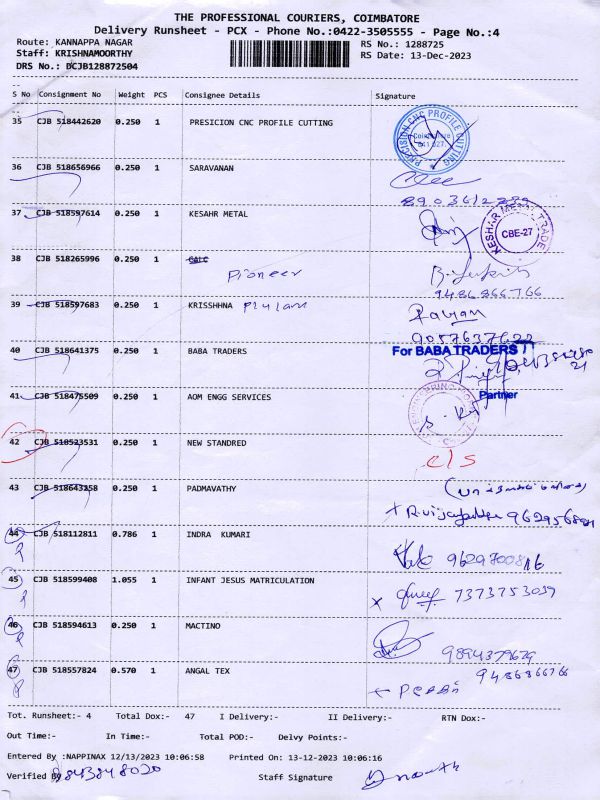 THE PROFESSIONAL COURIERS, COIMBATORE
Delivery Runsheet - PCX - Phone No.:0422-3505555 - Page No.:4
Route: KANNAPPA NAGAR RS No.: 1288725
Staff: KRISHNAMOORTHY RS Date: 13-Dec-2023
DRS No.: DCJB128872504
S No Consignment No Weight PCS Consignee Details Signature
35 CJB 518442620 0.250 1 PRESICION CNC PROFILE CUTTING
PRECISION CNC PROFILE CUTTING
36 CJB 518656966 0.250 1 SARAVANAN
37 CJB 518597614 0.250 1 KESAHR METAL
KESHAR METAL TRADE
CBE-27
38 CJB 518265996 0.250 1 CALC
Pioneer
9486866766
39 CJB 518597683 1 KRISSHHNA
9057637622
40 CJB 518641375 0.250 1 BABA TRADERS
For BABA TRADERS
Partner
41 CJB 518475509 0.250 1 AOM ENGG SERVICES
42 CJB 518523531 0.250 1 NEW STANDRED
c/s
43 CJB 518643258 0.250 1 PADMAVATHY
44 CJB 518112811 0.786 1 INDRA KUMARI
9629700816
45 CJB 518599408 1.055 1 INFANT JESUS MATRICULATION
x 7373753039
46 CJB 518594613 0.250 1 MACTINO
9894379679
47 CJB 518557824 0.570 1 ANGAL TEX
9486866766
Tot. Runsheet:- 4 Total Dox:- 47 I Delivery:- II Delivery:- RTN Dox:-
Out Time:- In Time:- Total POD:- Delvy Points:-
Entered By :NAPPINAX 12/13/2023 10:06:58 Printed On: 13-12-2023 10:06:16
Verified By 9843848020 Staff Signature